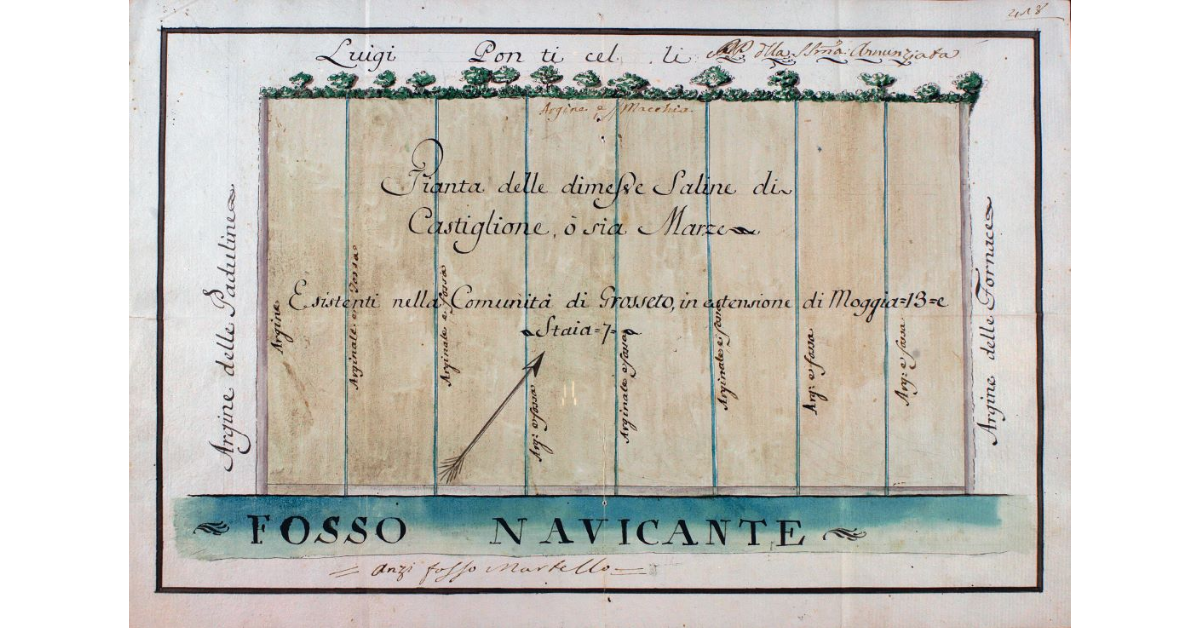 Luigi Pon ti cel li PP. dlla SSma. Annunziata
Argine e Macchia
Pianta delle dimesse Saline di
Castiglione, ò sia Marze
Esistenti nella Comunità di Grosseto, in estensione di Moggia=13=e
Staia=7=
Argine delle Paduline
Argine
Arginale e fossa
Arginale e fossa
Arg: e fossa
Arginale e fossa
Arginale e fossa
Arg: e fossa
Arg: e fossa
Argine delle Fornace
FOSSO NAVICANTE
= anzi fosso Martello =